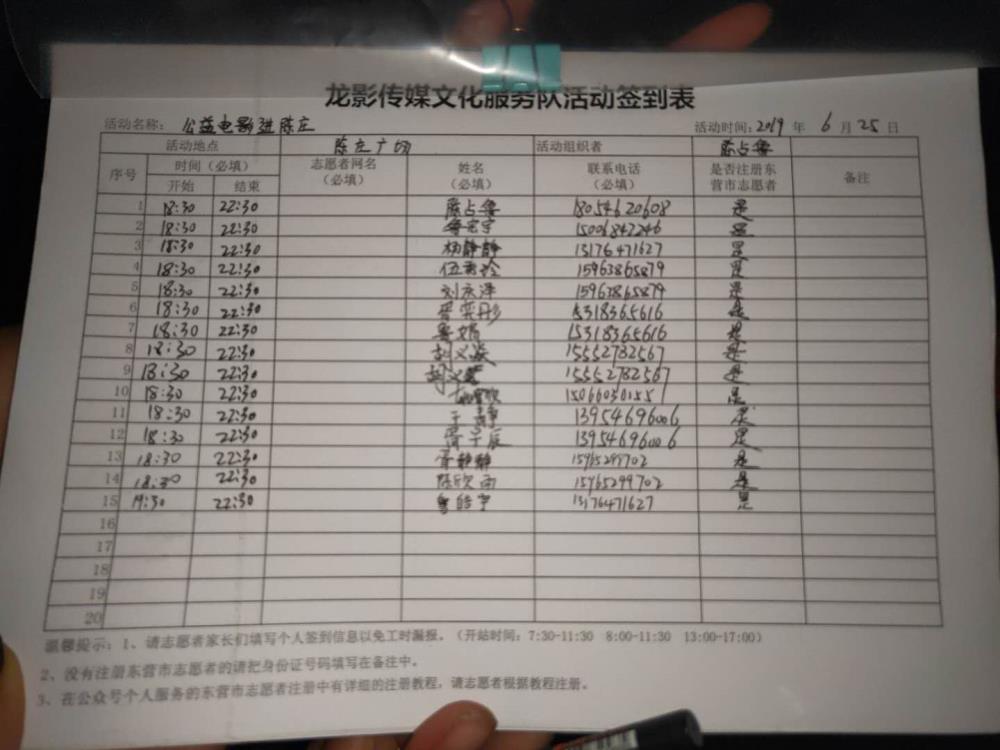 龙影传媒文化服务队活动签到表
活动名称: 公益电影进陈庄 活动时间: 2019 年 6 月 25 日
活动地点 陈庄广场 活动组织者 陈占鲁
序号 时间(必填) 志愿者网名(必填) 姓名(必填) 联系电话(必填) 是否注册东营市志愿者 备注
开始 结束
1 18:30 22:30 陈占鲁 18054620608 是
2 18:30 22:30 15006842246 是
3 18:30 22:30 杨静静 13176471627 是
4 18:30 22:30 伍秀玲 15963865879 是
5 18:30 22:30 刘庆泽 15963865879 是
6 18:30 22:30 15318365616 是
7 18:30 22:30 15318365616 是
8 18:30 22:30 15552782567 是
9 18:30 22:30 15552782567 是
10 18:30 22:30 是
11 18:30 22:30 13954696006 是
12 18:30 22:30 13954696006 是
13 18:30 22:30 15965299702 是
14 18:30 22:30 陈欣雨 15965299702 是
15 22:30 13176471627 是
16
17
18
19
20
温馨提示:1、请志愿者家长们填写个人签到信息以免工时漏报。(开站时间:7:30-11:30 8:00-11:30 13:00-17:00)
2、没有注册东营市志愿者的请把身份证号码填写在备注中。
3、在公众号个人服务的东营市志愿者注册中有详细的注册教程,请志愿者根据教程注册。